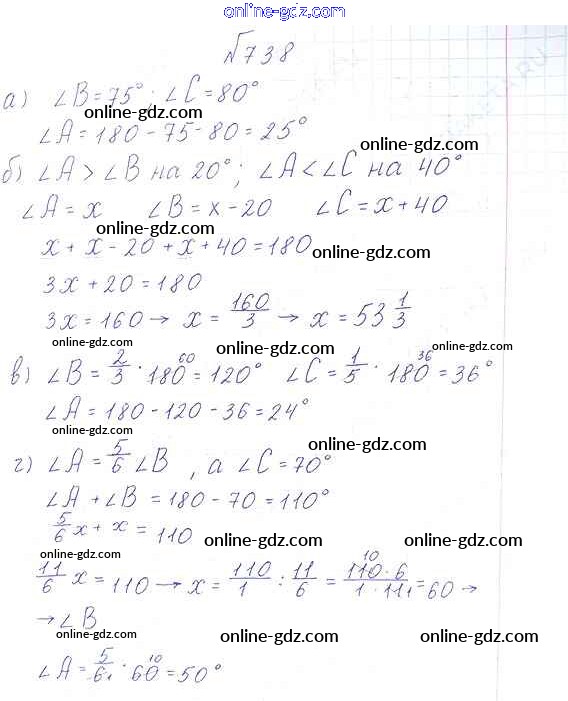 online-gdz.com
№738
а) ∠B=75°; ∠C=80°
online-gdz.com
∠A=180-75-80=25°
online-gdz.com
б) ∠A>∠B на 20°; ∠A<∠C на 40°
∠A=x ∠B=x-20 ∠C=x+40
online-gdz.com
x+x-20+x+40=180
online-gdz.com
3x+20=180
3x=160→x=160/3→x=53 1/3
online-gdz.com online-gdz.com online-gdz.com
в) ∠B=2/3·180 60=120° ∠C=1/5·180 36=36°
∠A=180-120-36=24°
online-gdz.com
г) ∠A=5/6∠B, а ∠C=70°
online-gdz.com
∠A+∠B=180-70=110°
5/6x+x=110
online-gdz.com online-gdz.com
online-gdz.com
11/6x=110→x=110/1:11/6=110·6/1·11 10 1=60→
→∠B
online-gdz.com online-gdz.com online-gdz.com
∠A=5/6·60 1 10=50°